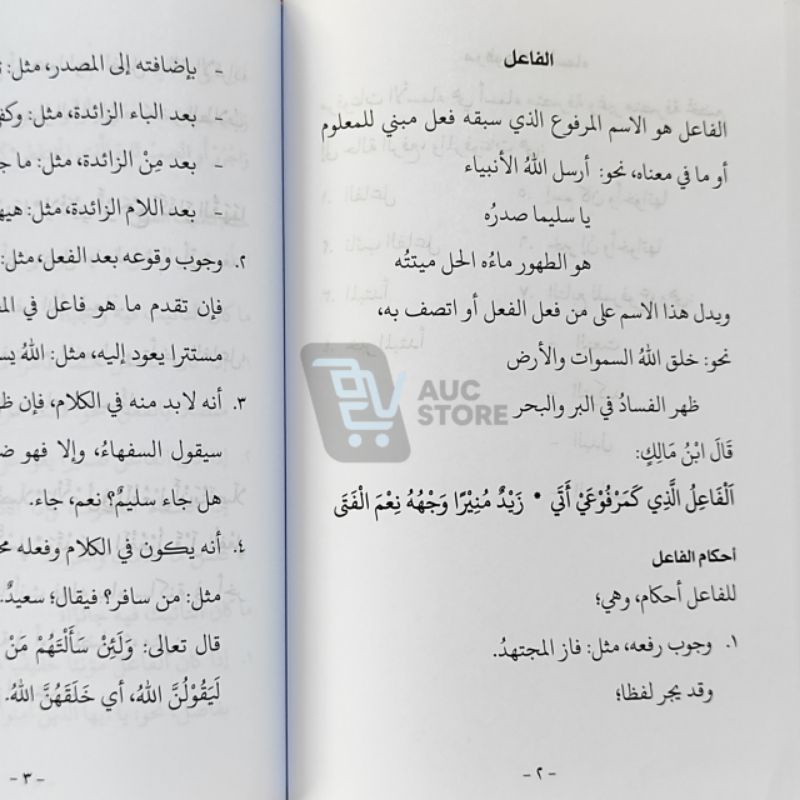 الفاعل
الفاعل هو الاسم المرفوع الذي سبقه فعل مبني للمعلوم
أو ما في معناه، نحو: أرسل اللهُ الأنبياء
يا سليما صدرُه
هو الطهور ماءُه الحل ميتتُه
ويدل هذا الاسم على من فعل الفعل أو اتصف به،
نحو: خلق اللهُ السموات والأرض
ظهر الفسادُ في البر والبحر
قَالَ ابْنُ مَالِكٍ:
اَلْفَاعِلُ الَّذِي كَمَرْفُوْعَيْ أَتَى * زَيْدٌ مُنِيْرًا وَجْهُهُ نِعْمَ الْفَتَى
أحكام الفاعل
للفاعل أحكام، وهي؛
١. وجوب رفعه، مثل: فاز المجتهدُ.
وقد يجر لفظا؛
- ٢ -
- بإضافته إلى المصدر، مثل:
- بعد الباء الزائدة، مثل:
- بعد مِنْ الزائدة، مثل: ما
- بعد اللام الزائدة، مثل:
٢. وجوب وقوعه بعد الفعل، مثل:
فإن تقدم ما هو فاعل في
مستترا يعود إليه، مثل: اللهُ
٣. أنه لابد منه في الكلام، فإن
سيقول السفهاءُ، وإلا فهو
هل جاء سليمٌ؟ نعم، جاء.
٤. أنه يكون في الكلام وفعله
مثل: من سافر؟ فيقال؛ سعيدٌ.
قال تعالى: وَلَئِنْ سَأَلْتَهُمْ مَنْ
لَيَقُوْلُنَّ اللهُ، أي خَلَقَهُنَّ اللهُ.
- ٣ -
AUC
STORE